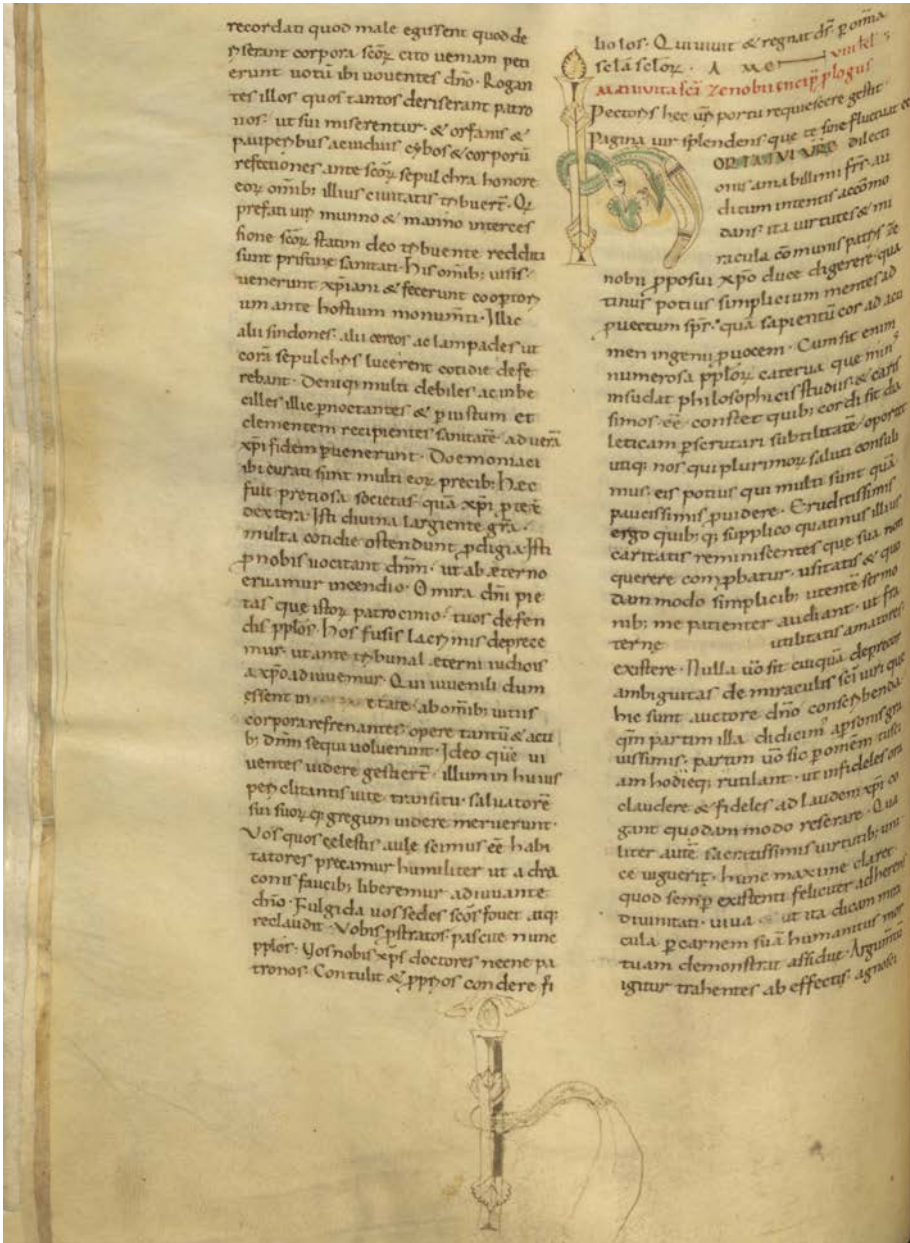 recordati quod male egissent quod de
riserant corpora scōꝝ cito ueniam peti
erunt uotū ibi uouentes dn̄o · Rogan
tes illos quos tantos deriserant patro
nos · ut sui miserentur · & orfanis &
pauperibus ac uiduis cybos & corporū
refectiones ante scōꝝ sepulchra honore
eoꝝ omībꝫ illius ciuitatis tribuerт̄ · Qr
prefati uiri munno & manno interces
sione scōꝝ statim deo tribuente redditi
sunt pristine sanitati · His omībꝫ uisis ·
uenerunt xp̄iani & fecerunt coopTori
um ante hostium monumт̄i · Illic
alii sindones · alii cereos ac lampades ut
corā sepulchris lucerent cotidie defe
rebant · Deniqꝫ multi debiles ac inbe
cilles illic ꝑnoctantes & ꝑ iustum et
clementem recipientes sanitatē · ad uerā
xp̄i fidem ꝑuenerunt · Doemoniaci
ibi curati sunt multi eoꝝ precibꝫ Hęc
fuit pretiosa societas · quā xp̄i ꝑ tex̄
dextera · Isti diuina largiente grā ·
multa cotidie ostendunt ꝓdigia · Isti
ꝓ nobis uocitant dn̄m · ut ab æterno
eruamur incendio · O mira dn̄i pie
tas que istoꝝ patrocinio · tuos defen
dis ppl̄os · Hos fusis lacrymis deprece
mur · ut ante tribunal æterni iudicis
a xp̄o adiuuemur · Qui iuuenili dum
essent in etate · ab omībꝫ uitiis
corpora refrenantes · opere tantū & actu
bꝫ dn̄m sequi uoluerunt · Ideo quē ui
uentes uidere gestierт̄ · illum in huius
periclitantis uite transitu · saluatorē
sui suoꝝ qꝫ gregum uidere meruerunt ·
Vos quos celestis aule scimus eē habi
tatores precamur humiliter ut a dra
conis faucibꝫ liberemur adiuuante
dn̄o · Fulgida uos sedes scōs fouet atqꝫ
recludit · Vobis ꝓstratos pascite nunc
ppl̄os · Vos nobis xp̄s doctores necne pa
tronos · Contulit & ꝓprios condere fi
liolos · Qui uiuit & regnat ds̄ · ꝑ omīa
sclā scloꝝ · A M E uiii kl
Maii uita scī Zenobii incip̄ ꝓlogus
Pectoris hec ur̄i portu requiescere gestit
Pagina uir splendens que te sine fluctuat
ORTATVI VRO dilecti
onis amabillimi fr̄s · au
ditum intentis accōmo
dans · ita uirtutes & mi
racula cōmunis patris Ze
nobii ꝓposui xp̄o duce digerere · qua
tinus potius simplicium mentes ad
ꝓuectum spr̄ · quā sapientū cor ad acu
men ingenii ꝓuocem · Cum sit enim
numerosa ppl̄oꝝ caterua que min
insudat philosophicis studiis · & caris
simos eē constet quibꝫ cordi sit dia
leticam ꝑscrutari subtilitatē · oportet
utiqꝫ nos qui plurimoꝝ saluti consuli
mus · eis potius qui multi sunt quā
paucissimis ꝓuidere · Eruditissimis
ergo quibꝫqꝫ supplico quatinus illius
caritatis reminiscentes que sua non
querere comꝓbatur · usitatis & quo
dam modo simplicibꝫ utentē sermo
nibꝫ me patienter audiant · ut fra
terne utilitatis amatores
existere · Nulla uō sit cuiquā deprecor
ambiguitas de miraculis scī uiri que
hic sunt auctore dn̄o conscribenda
qm̄ partim illa didicim a ꝑsonis gra
uissimis · partim uō sic ꝑ omēm tusci
am hodieqꝫ rutilant · ut infideles ora
claudere & fideles ad laudem xp̄i co
gant quodam modo reserare · Qua
liter autē sacratissimis uirtutibꝫ uni
ce uiguerit · hinc maxime claret
quod semꝑ existenti feliciter adherens
diuinitati · uiua ut ita dicam mira
cula ꝑ carnem suā humanitus mor
tuam demonstrat assidue · Argumтū
igitur trahentes ab effectis · agnosci